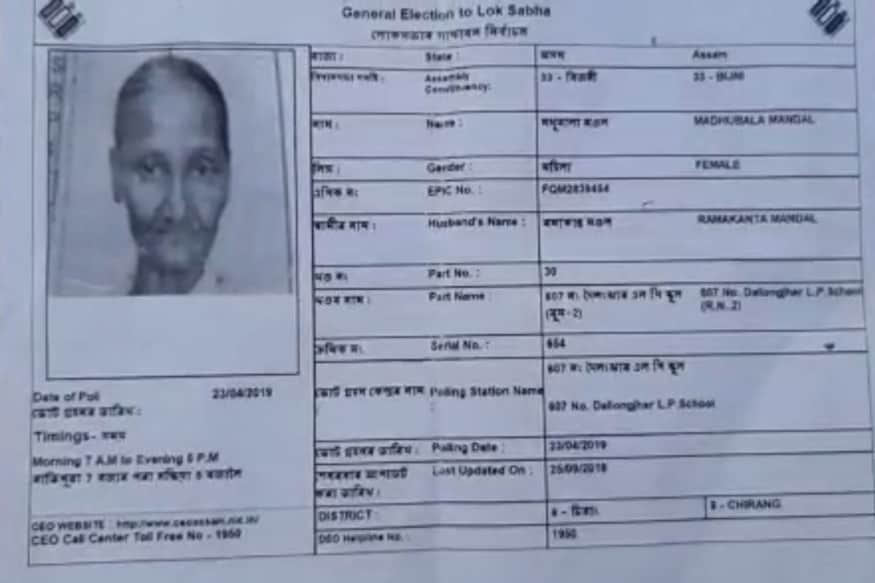 General Election to Lok Sabha
লোকসভাৰ সাধাৰণ নিৰ্বাচন
ৰাজ্য : State : অসম Assam
Assembly Constituency: 33 - বিজনী 33 - BIJNI
নাম : Name : মধুবালা মণ্ডল MADHUBALA MANDAL
লিংগ : Gender : মহিলা FEMALE
EPIC No. : FQM2839454
স্বামীৰ নাম : Husband's Name : ৰমাকান্ত মণ্ডল RAMAKANTA MANDAL
Part No. : 30
Part Name : 607 নং এল পি স্কুল (ৰুম-2) 607 No. Dallongjhar L.P.School (R.N. 2)
Serial No. : 654
607 নং এল পি স্কুল
ভোট গ্ৰহণ কেন্দ্ৰৰ নাম Polling Station Name :
607 No. Dallongjhar L.P.School
ভোট গ্ৰহণৰ তাৰিখ : Polling Date : 23/04/2019
Last Updated On : 25/09/2018
DISTRICT : 8 - চিৰাং 8 - CHIRANG
DEO Helpline No. : 1950
Date of Poll 23/04/2019
ভোট গ্ৰহণৰ তাৰিখ :
Timings- সময়
Morning 7 A.M to Evening 5 P.M
ৰাতিপুৱা 7 বজাৰ পৰা সন্ধিয়া 5 বজালৈ
CEO WEBSITE : http://www.ceoassam.nic.in/
CEO Call Center Toll Free No - 1950